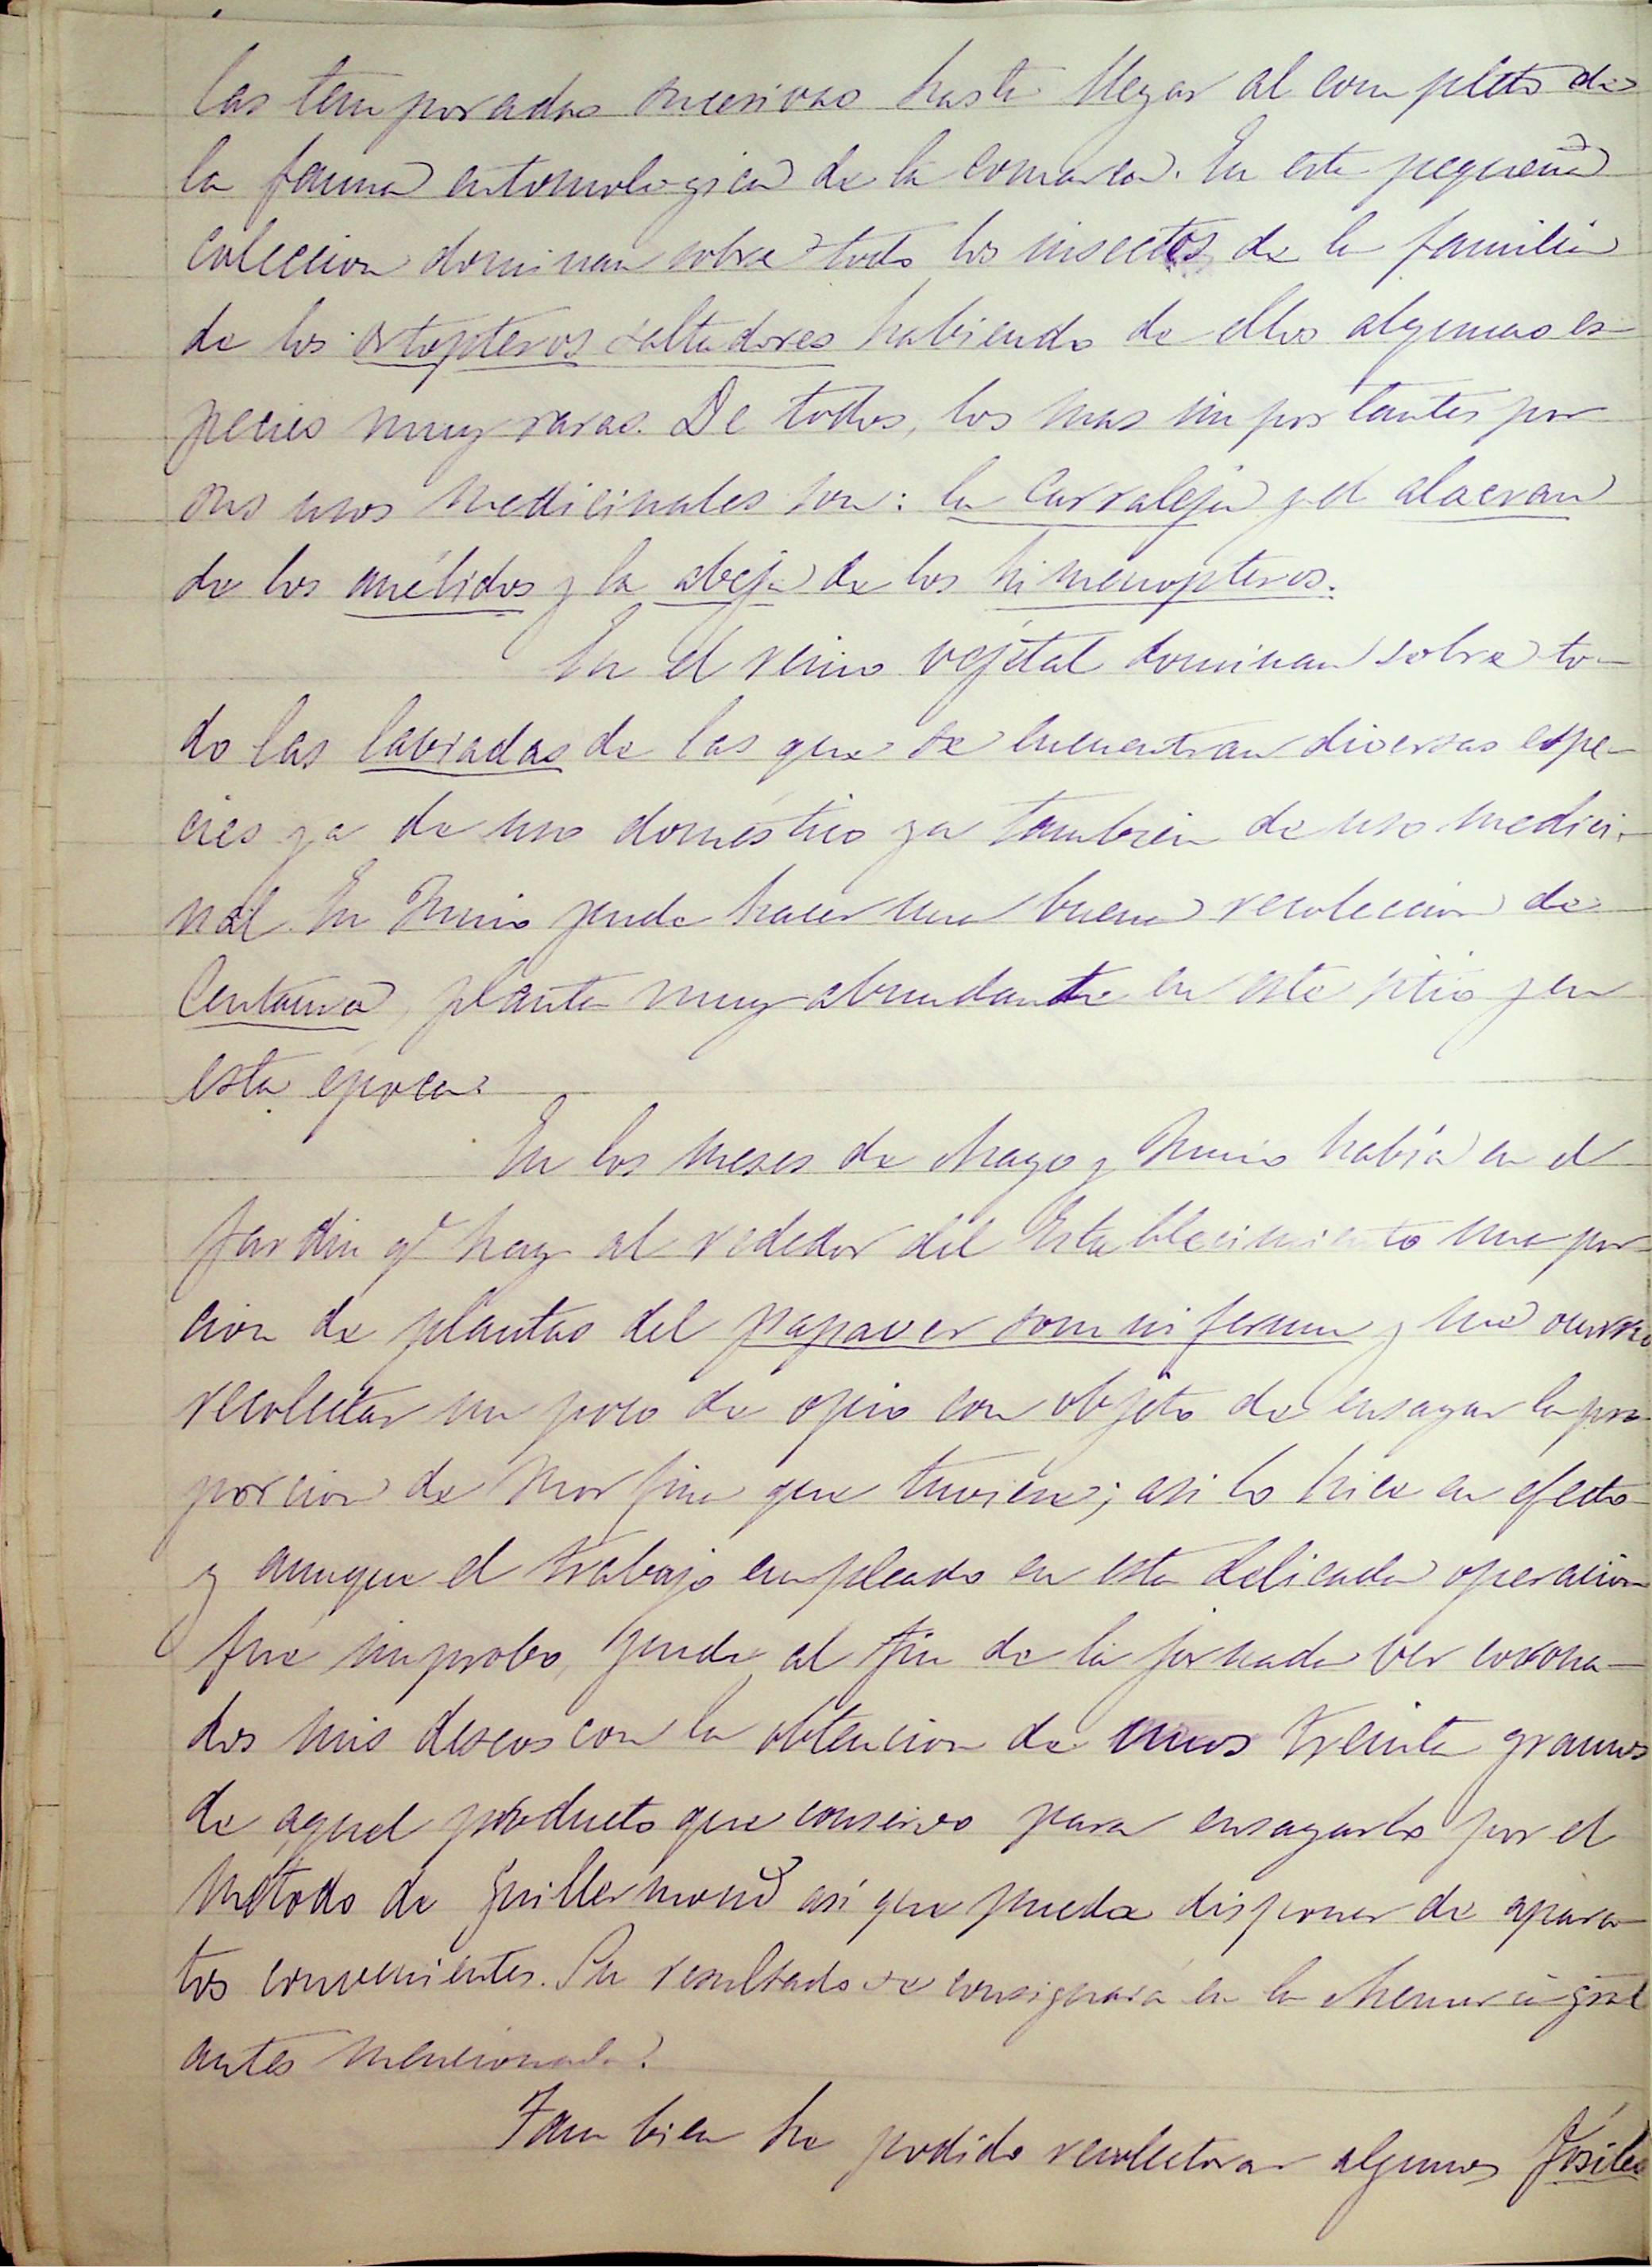 las temporadas sucesivas hasta llegar al completo de
la fauna entomologica de la comarca. En esta pequeña
coleccion dominan sobre todo los insectos de la familia
de los ortopteros saltadores habiendo de ellos algunas es-
pecies muy raras. De todos, los mas importantes por
sus usos medicinales son: la carraleja y el alacran
de los anélidos y la abeja de los himenopteros.
En el reino vejetal dominan sobre to-
do las labiadas de las que se encuentran diversas espe-
cies ya de uso doméstico ya tambien de uso medici-
nal. En Junio pude hacer una buena recoleccion de
Centaura, planta muy abundante en este sitio y en
esta época.
En los meses de Mayo y Junio habia en el
Jardin qe hay al rededor del Establecimiento una por
cion de plantas del papaver somniferum y me ocurrió
recolectar un poco de opio con objeto de ensayar la pro-
porcion de morfina que tuviera; asi lo hice en efecto
y aunque el trabajo empleado en esta delicada operacion
fué improbo, pude al fin de la jornada ver corona-
dos mis deseos con la obtencion de unos treinta gramos
de aquel producto que conservo para ensayarlo por el
método de Guillermond asi que pueda disponer de apara-
tos convenientes. Su resultado se consignará en la Memoria gral
antes mencionada.
Tambien he podido recolectar algunos fósiles